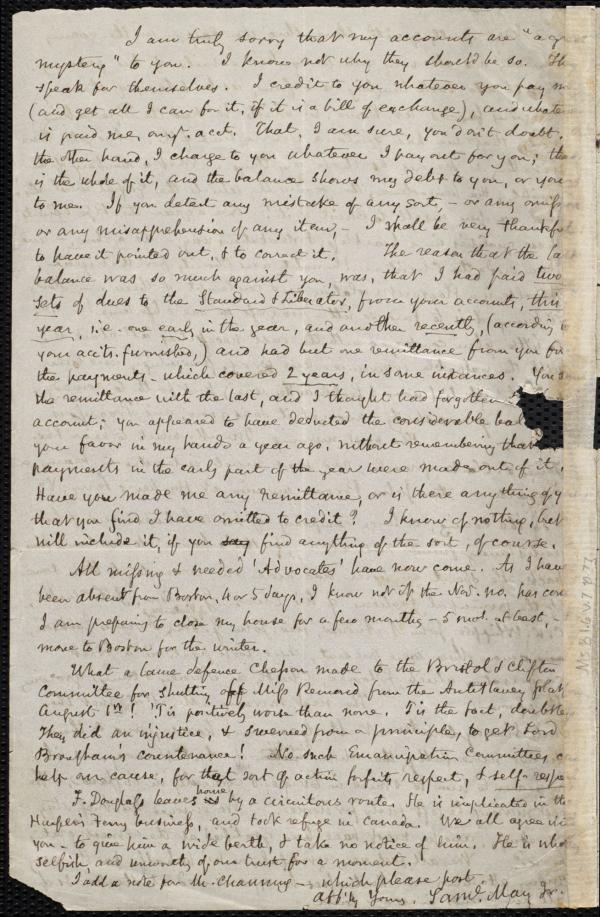 I am truly sorry that my accounts are "a
mystery" to you. I know not why they should be so.
speak for themselves. I credit to you whatever you pay
(and get all I can for it, if it is a bill of exchange), and
is paid me, on yr. acct. That, I am sure, you don't doubt.
the other hand, I charge to you whatever I pay out for you;
is the whole of it, and the balance shows my debt to you, or
to me. If you detect any mistake of any sort, – or any
or any misapprehension of any item, – I shall be very
to have it pointed out, & to correct it. The reason that the
balance was so much against you, was, that I had paid two
sets of dues to the Standard & Liberator, from your accounts, this
year, i.e. one early in the year, and another recently, (according
your accts. furnished,) and had but one remittance from you for
the payments – which covered 2 years, in some instances.
the remittance with the last, and I thought had forgotten
account; you appeared to have deducted the considerable
your favor in my hands a year ago, without remembering that
payments in the early part of the year were made out of it.
Have you made me any remittance, or is there anything
that you find I have omitted to credit? I know of nothing, but
will include it, if you say find anything of the sort, of course.
All missing & needed 'Advocates' have now come. As I have
been absent from Boston, 4 or 5 days, I know not if the Nov. no. has
I am preparing to close my house for a few months – 5 mos. at least, –
move to Boston for the winter.
What a lame defence Chesson made to the Bristol & Clifton
Committee for shutting off Miss Remond from the AntiSlavery
August 1st! 'Tis positively worse than none. Tis the fact,
They did an injustice, & swerved from a principle, to get Lord
Brougham's countenance! No such Emancipation Committees
help our cause, for that sort of action forfeits respect, & self-
F. Douglass leaves home by a circuitous route. He is implicated in
Harper's Ferry business, and took refuge in Canada. We all agree
you – to give him a wide berth, & take no notice of him. He is
selfish, and unworthy of our trust for a moment.
I add a note for Mr. Channing – which please post.
Yours, Saml. May Jr.